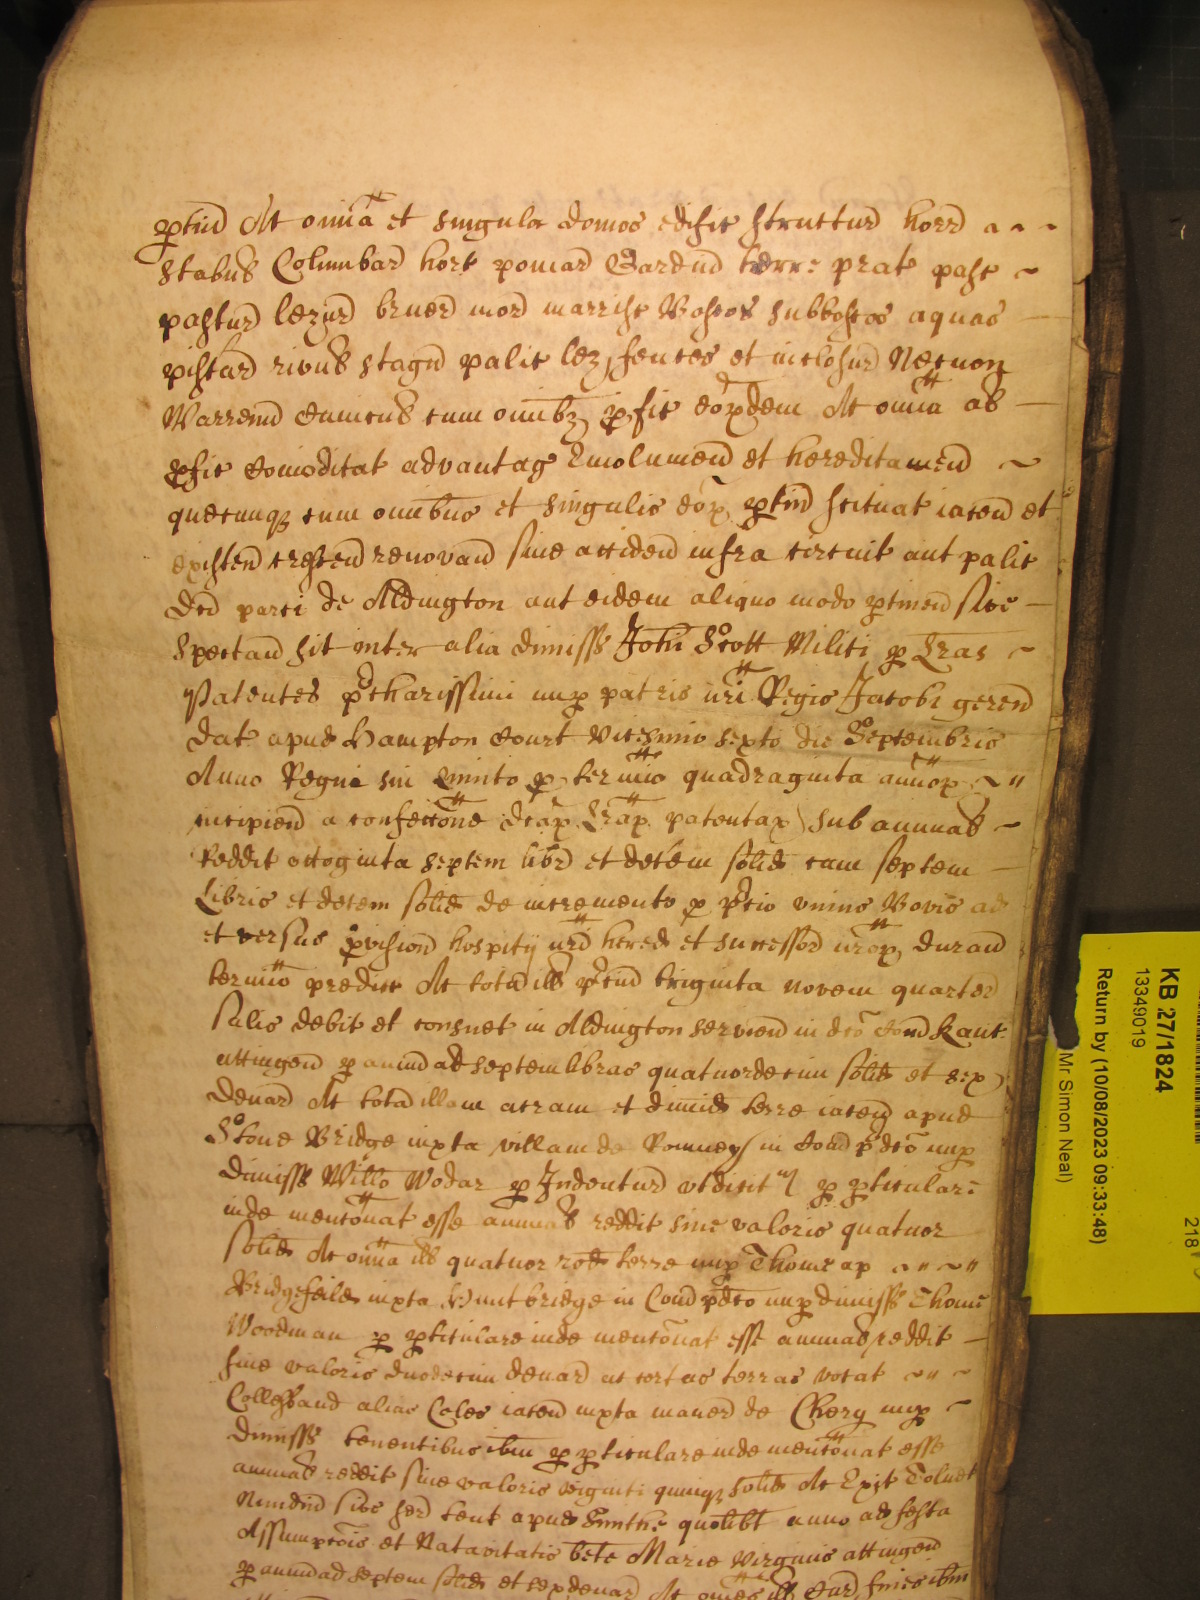 ptin Ac omia et singula domos edific structur horr
stabul Columbar hort pomar Gardin terr: prat past
pastur lezur bruer mor marrisc Boscos subboscos aquas
piscar rivul stagn palic lez fences et inclosur Necnon
Warrenn Cunicul cum omibz pfic eordem Ac omia al
pfic Comoditat advantag Emolumen et hereditamen
quecunqz cum omibus et singulis eor ptin scituat iacen et
existen crescen renovan sive acciden infra circuit aut palic
dci parci de Aldington aut eidem aliquo modo ptinen sive
spectan sit inter alia dimiss Johi Scott Militi p Lras
Patentes pcharissimi nup patris nri Regis Jacobi geren
dat apud Hampton Court vicesimo sexto die Septembris
Anno Regni sui Quinto p termio quadraginta annor
incipien a confeccone dcar Lrar patentar sub annual
Reddit octoginta septem libr et decem solid cum septem
Libris et decem solid de incremento p pcio unius Bovis ad
et versus pvision hospitij nri hered et successor nror duran
termio predict Ac totu ill pciu triginta novem quarter
salis debit et consuet in Aldington servien in dco Com Kant:
attingen p annu ad septem libras quatuordecim solid et sex
denar Ac tota illam acram et dimid terre iacen apud
Stone Bridge iuxta villam de Romney in Com pdco nup
dimiss Willo Wodar p Indentur ut dicit p pticular:
inde menconat esse annual reddit sive valoris quatuor
solid Ac omia ill quatuor rod terre nup Thome ap
Bridgefeild iuxta Huntbridge in Com pdco nup dimiss Thome
Woodman p pticulare inde menconat esse annual reddit
sive valoris duodecim denar ac cert as terras vocat
Collessand alias Coles iacen iuxta maner de Chery nup
dimiss tenentibus ibm p pticulare inde menconat esse
annual reddit sive valoris viginti quinqz solid Ac Exit Tolnet
Nundin sive fer tent apud Smithe quolibt anno ad festa
Assumpcois et Natavitatis bete Marie Virginis attingen
p annu ad septem solid et sex denar Ac omes ill Cur fines ibm
KB 27/1824
13349019
Return by (10/08/2023 09:33:48)
Mr Simon Neal)
218